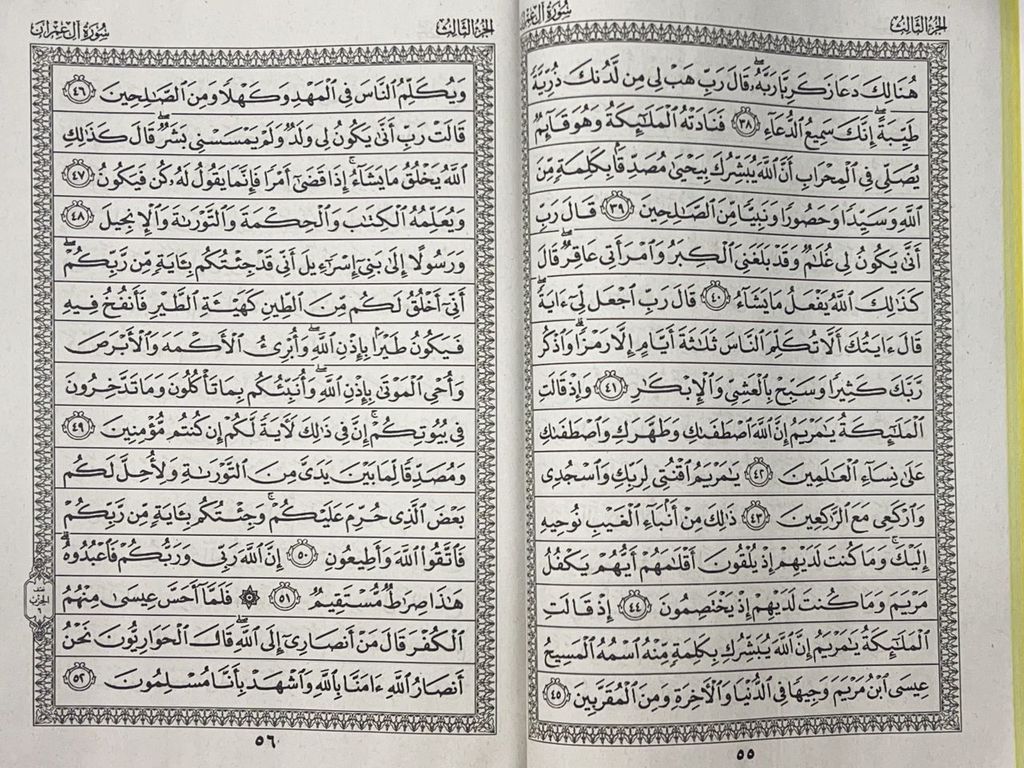 الجزء الثالث
سورة آل عمران
هُنَالِكَ دَعَا زَكَرِيَّا رَبَّهُۥۖ قَالَ رَبِّ هَبْ لِى مِن لَّدُنكَ ذُرِّيَّةً
طَيِّبَةًۖ إِنَّكَ سَمِيعُ ٱلدُّعَآءِ ٣٨ فَنَادَتْهُ ٱلْمَلَـٰٓئِكَةُ وَهُوَ قَآئِمٌ
يُصَلِّى فِى ٱلْمِحْرَابِ أَنَّ ٱللَّهَ يُبَشِّرُكَ بِيَحْيَىٰ مُصَدِّقًۢا بِكَلِمَةٍ مِّنَ
ٱللَّهِ وَسَيِّدًا وَحَصُورًا وَنَبِيًّا مِّنَ ٱلصَّـٰلِحِينَ ٣٩ قَالَ رَبِّ
أَنَّىٰ يَكُونُ لِى غُلَـٰمٌ وَقَدْ بَلَغَنِىَ ٱلْكِبَرُ وَٱمْرَأَتِى عَاقِرٌۖ قَالَ
كَذَٰلِكَ ٱللَّهُ يَفْعَلُ مَا يَشَآءُ ٤٠ قَالَ رَبِّ ٱجْعَل لِّىٓ ءَايَةًۖ
قَالَ ءَايَتُكَ أَلَّا تُكَلِّمَ ٱلنَّاسَ ثَلَـٰثَةَ أَيَّامٍ إِلَّا رَمْزًاۗ وَٱذْكُر
رَّبَّكَ كَثِيرًا وَسَبِّحْ بِٱلْعَشِىِّ وَٱلْإِبْكَـٰرِ ٤١ وَإِذْ قَالَتِ
ٱلْمَلَـٰٓئِكَةُ يَـٰمَرْيَمُ إِنَّ ٱللَّهَ ٱصْطَفَىٰكِ وَطَهَّرَكِ وَٱصْطَفَىٰكِ
عَلَىٰ نِسَآءِ ٱلْعَـٰلَمِينَ ٤٢ يَـٰمَرْيَمُ ٱقْنُتِى لِرَبِّكِ وَٱسْجُدِى
وَٱرْكَعِى مَعَ ٱلرَّٰكِعِينَ ٤٣ ذَٰلِكَ مِنْ أَنۢبَآءِ ٱلْغَيْبِ نُوحِيهِ
إِلَيْكَۚ وَمَا كُنتَ لَدَيْهِمْ إِذْ يُلْقُونَ أَقْلَـٰمَهُمْ أَيُّهُمْ يَكْفُلُ
مَرْيَمَ وَمَا كُنتَ لَدَيْهِمْ إِذْ يَخْتَصِمُونَ ٤٤ إِذْ قَالَتِ
ٱلْمَلَـٰٓئِكَةُ يَـٰمَرْيَمُ إِنَّ ٱللَّهَ يُبَشِّرُكِ بِكَلِمَةٍ مِّنْهُ ٱسْمُهُ ٱلْمَسِيحُ
عِيسَى ٱبْنُ مَرْيَمَ وَجِيهًا فِى ٱلدُّنْيَا وَٱلْـَٔاخِرَةِ وَمِنَ ٱلْمُقَرَّبِينَ ٤٥
٥٥
الجزء الثالث
سورة آل عمران
وَيُكَلِّمُ ٱلنَّاسَ فِى ٱلْمَهْدِ وَكَهْلًا وَمِنَ ٱلصَّـٰلِحِينَ ٤٦
قَالَتْ رَبِّ أَنَّىٰ يَكُونُ لِى وَلَدٌ وَلَمْ يَمْسَسْنِى بَشَرٌۖ قَالَ كَذَٰلِكِ
ٱللَّهُ يَخْلُقُ مَا يَشَآءُۚ إِذَا قَضَىٰٓ أَمْرًا فَإِنَّمَا يَقُولُ لَهُۥ كُن فَيَكُونُ ٤٧
وَيُعَلِّمُهُ ٱلْكِتَـٰبَ وَٱلْحِكْمَةَ وَٱلتَّوْرَىٰةَ وَٱلْإِنجِيلَ ٤٨
وَرَسُولًا إِلَىٰ بَنِىٓ إِسْرَٰٓءِيلَ أَنِّى قَدْ جِئْتُكُم بِـَٔايَةٍ مِّن رَّبِّكُمْۖ
أَنِّىٓ أَخْلُقُ لَكُم مِّنَ ٱلطِّينِ كَهَيْـَٔةِ ٱلطَّيْرِ فَأَنفُخُ فِيهِ
فَيَكُونُ طَيْرًۢا بِإِذْنِ ٱللَّهِۖ وَأُبْرِئُ ٱلْأَكْمَهَ وَٱلْأَبْرَصَ
وَأُحْىِ ٱلْمَوْتَىٰ بِإِذْنِ ٱللَّهِۖ وَأُنَبِّئُكُم بِمَا تَأْكُلُونَ وَمَا تَدَّخِرُونَ
فِى بُيُوتِكُمْۚ إِنَّ فِى ذَٰلِكَ لَـَٔايَةً لَّكُمْ إِن كُنتُم مُّؤْمِنِينَ ٤٩
وَمُصَدِّقًا لِّمَا بَيْنَ يَدَىَّ مِنَ ٱلتَّوْرَىٰةِ وَلِأُحِلَّ لَكُم
بَعْضَ ٱلَّذِى حُرِّمَ عَلَيْكُمْۚ وَجِئْتُكُم بِـَٔايَةٍ مِّن رَّبِّكُمْ
فَٱتَّقُوا۟ ٱللَّهَ وَأَطِيعُونِ ٥٠ إِنَّ ٱللَّهَ رَبِّى وَرَبُّكُمْ فَٱعْبُدُوهُۗ
هَـٰذَا صِرَٰطٌ مُّسْتَقِيمٌ ٥١ ۞ فَلَمَّآ أَحَسَّ عِيسَىٰ مِنْهُمُ
ٱلْكُفْرَ قَالَ مَنْ أَنصَارِىٓ إِلَى ٱللَّهِۖ قَالَ ٱلْحَوَارِيُّونَ نَحْنُ
أَنصَارُ ٱللَّهِ ءَامَنَّا بِٱللَّهِ وَٱشْهَدْ بِأَنَّا مُسْلِمُونَ ٥٢
نصف
الحزب
٦
٥٦